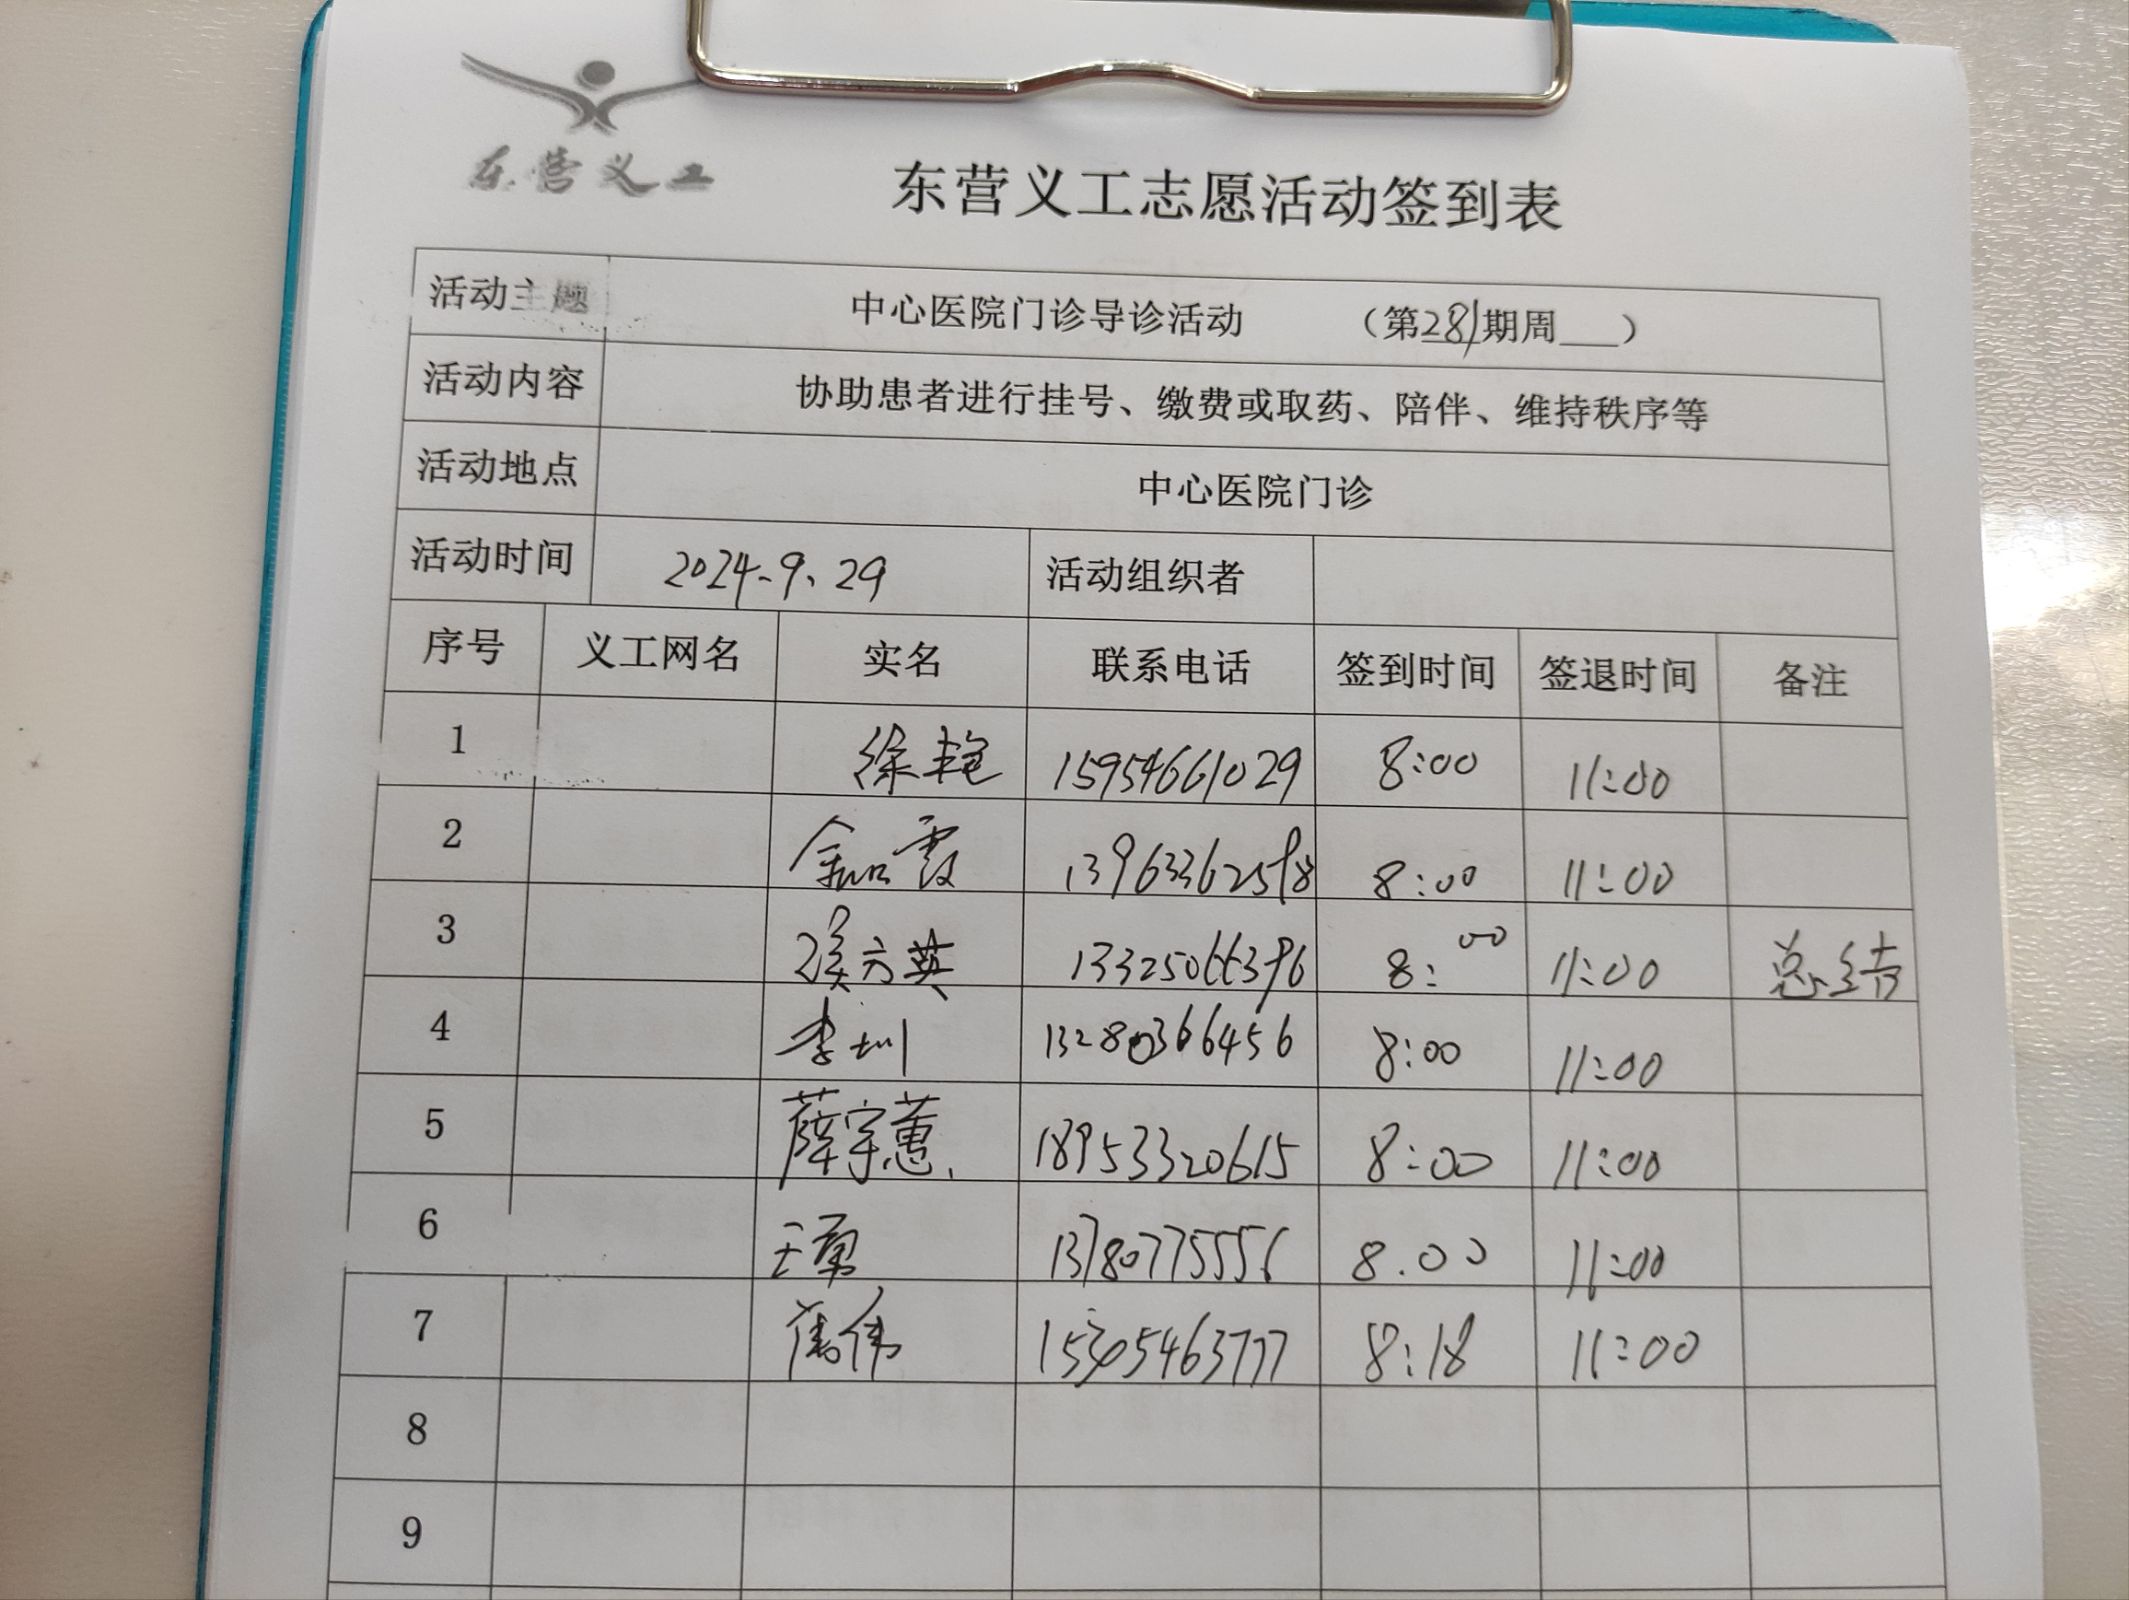 东营义工
东营义工志愿活动签到表
活动主题 中心医院门诊导诊活动 （第281期周___）
活动内容 协助患者进行挂号、缴费或取药、陪伴、维持秩序等
活动地点 中心医院门诊
活动时间 2024.9.29 活动组织者
序号 义工网名 实名 联系电话 签到时间 签退时间 备注
1 徐艳 15954661029 8:00 11:00
2 霞 13963362598 8:00 11:00
3 侯方英 13325066396 8:00 11:00 总结
4 李圳 13280366456 8:00 11:00
5 薛宇蕙 18953320615 8:00 11:00
6 王勇 13780775556 8.00 11:00
7 伟 15305463777 8:18 11:00
8
9